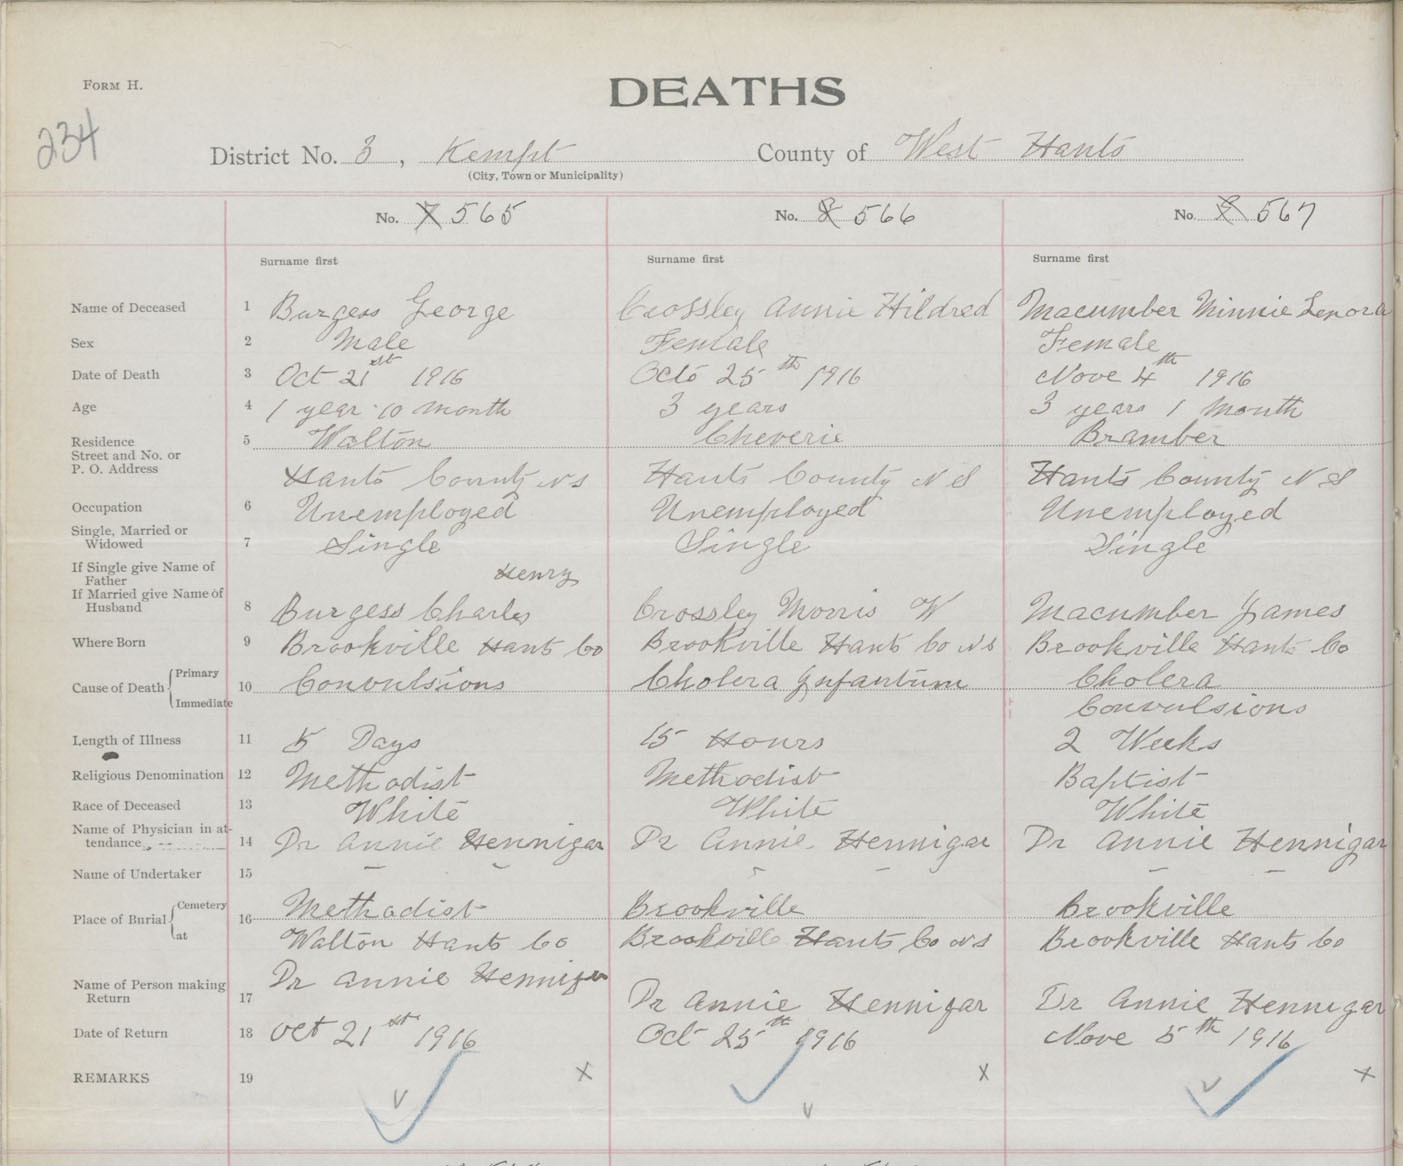 FORM H.
DEATHS
234
District No. 3, Kempt County of West Hants
(City, Town or Municipality)
No. 7 565 No. 8 566 No. 9 567
Surname first Surname first Surname first
Name of Deceased 1 Burgess George Crossley Annie Hildred Macumber Minnie Lenora
Sex 2 Male Female Female
Date of Death 3 Oct 21st 1916 Octo 25th 1916 Nove 4th 1916
Age 4 1 year 10 month 3 years 3 years 1 month
Residence 5 Walton Cheverie Bramber
Street and No. or
P. O. Address Hants County NS Hants County N S Hants County N S
Occupation 6 Unemployed Unemployed Unemployed
Single, Married or
Widowed 7 Single Single Single
If Single give Name of
Father Henry
If Married give Name of
Husband 8 Burgess Charles Crossley Morris W Macumber James
Where Born 9 Brookville Hants Co Brookville Hants Co NS Brookville Hants Co
Cause of Death Primary 10 Convulsions Cholera Infantum Cholera
Immediate Convulsions
Length of Illness 11 5 Days 15 Hours 2 Weeks
Religious Denomination 12 Methodist Methodist Baptist
Race of Deceased 13 White White White
Name of Physician in at-
tendance 14 Dr Annie Hennigar Dr Annie Hennigar Dr Annie Hennigar
Name of Undertaker 15 — — — — — —
Place of Burial Cemetery 16 Methodist Brookville Brookville
at Walton Hants Co Brookville Hants Co NS Brookville Hants Co
Name of Person making
Return 17 Dr Annie Hennigar Dr Annie Hennigar Dr Annie Hennigar
Date of Return 18 Oct 21st 1916 Oct 25th 1916 Nove 5th 1916
REMARKS 19 x x x